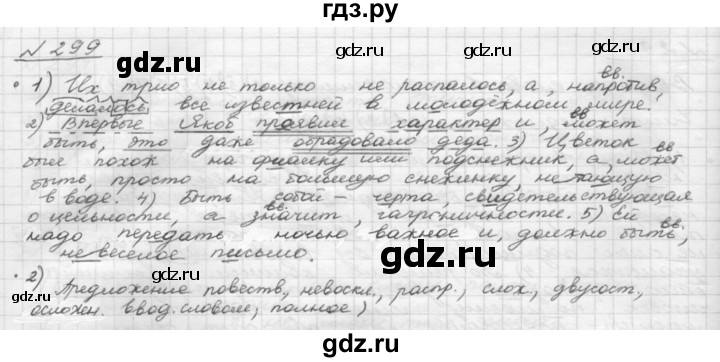 гдз.ру
№ 299
gdz.ru gdz.ru
• 1) Их трио не только не распалось, а, напротив, вв.
делалось все известней в молодёжном мире.
gdz.ru gdz.ru
2) Впервые Яков проявил характер и, может вв.
быть, это даже обрадовало деда. 3) Цветок
был похож на фиалку или подснежник, а, может вв.
быть, просто на большую снежинку, не тающую
gdz.ru gdz.ru
в воде. 4) Быть собой – черта, свидетельствующая
о цельности, а значит, гармоничности. 5) Ей вв.
надо передать ночью важное и, должно быть, вв.
невеселое письмо.
gdz.ru gdz.ru
• 2) Предложение повеств, невоскл., распр., слож., двусост.,
осложн. ввод. словом, полное,
gdz.ru gdz.ru